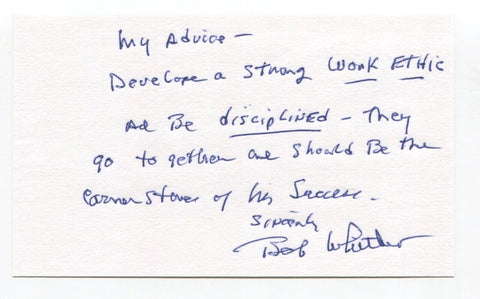 My Advice -
Develope a strong Work Ethic
Ad Be disciplined - They
go to gether and should Be the
corner stones of his Success.
Sincerely
Bob